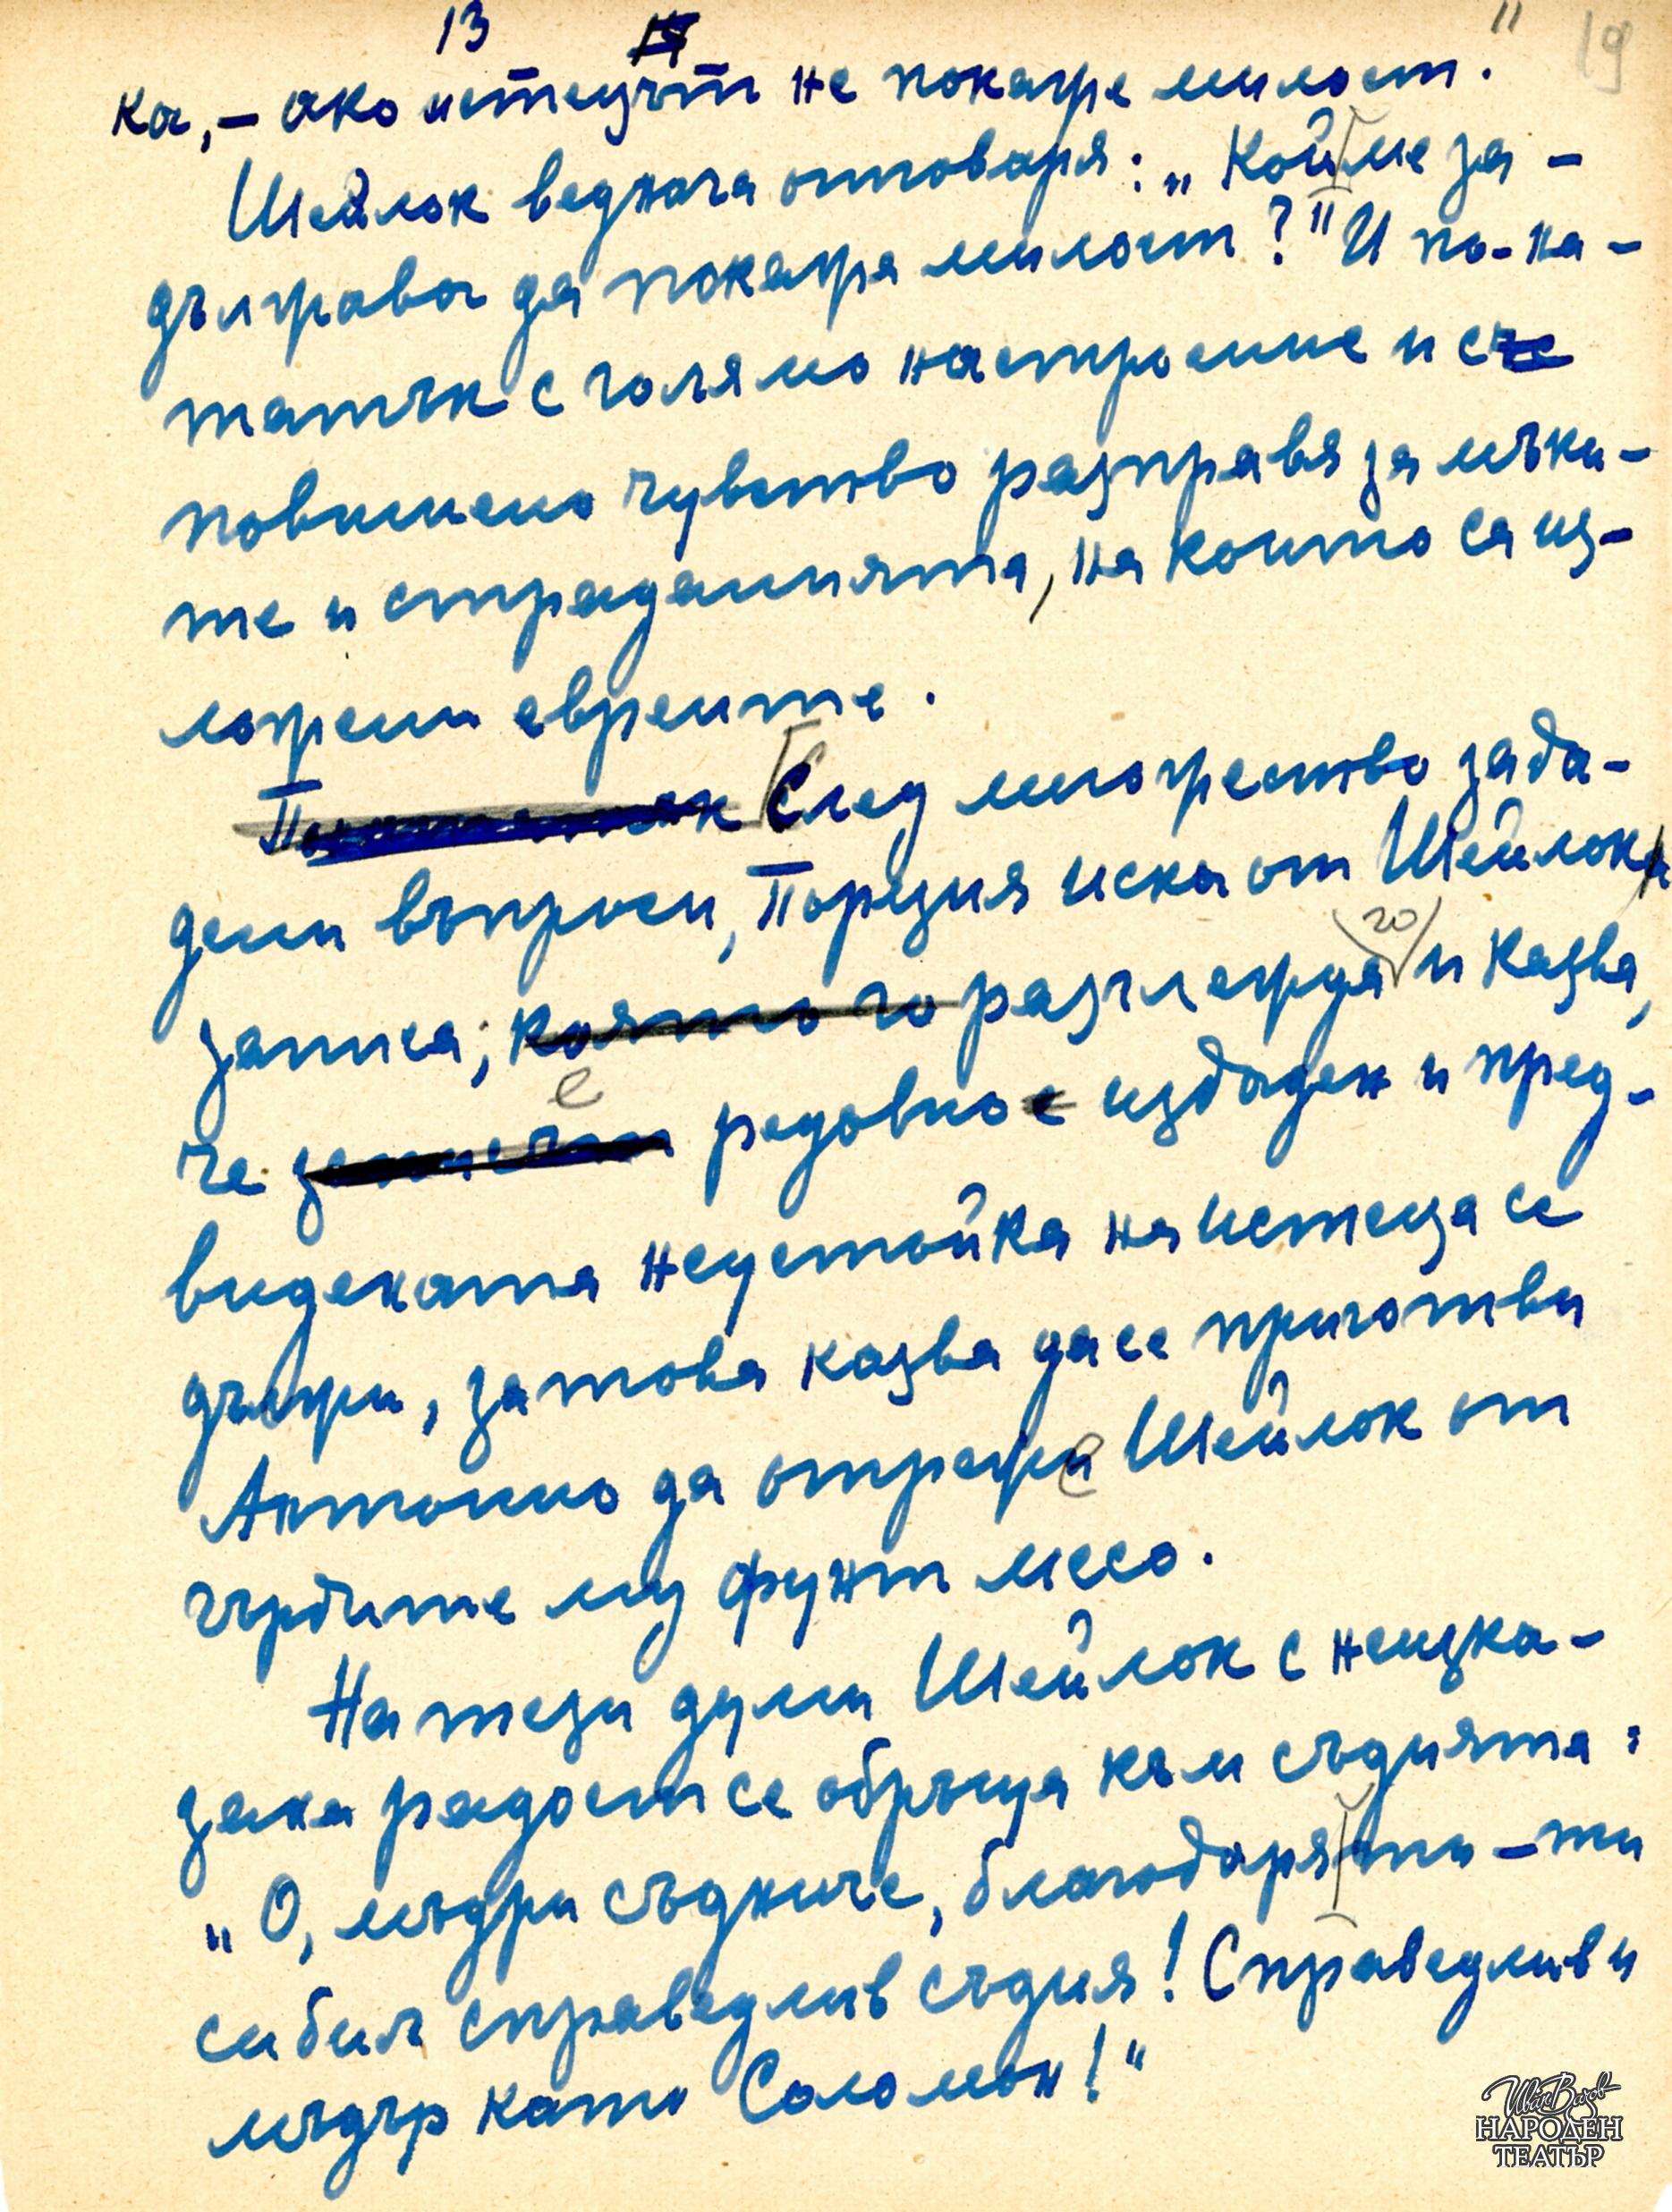 13 14 19
ка, – ако истецът не покаже милост."
Шейлок веднага отговаря: „Кой ме за-
дължава да покажа милост?" И по-на-
татък с голямо настроение и с че
повишено чувство разправя за мъки-
те и страданията, на които са из-
ложени евреите.
По-нататък След множество зада-
дени въпроси, Порция иска от Шейлока
записа; която го разглежда го и казва,
че записът е редовно е издаден и пред-
видената неустойка на истеца се
дължи, затова казва да се приготви
Антонио да отреже Шейлок от
гърдите му фунт месо.
На тези думи Шейлок с неизка-
зана радост се обръща към съдията:
„О, мъдри съдниче, благодаря ти – ти
си бил справедлив съдия! Справедлив и
мъдър като Соломон!"
Иван Вазов
НАРОДЕН
ТЕАТЪР